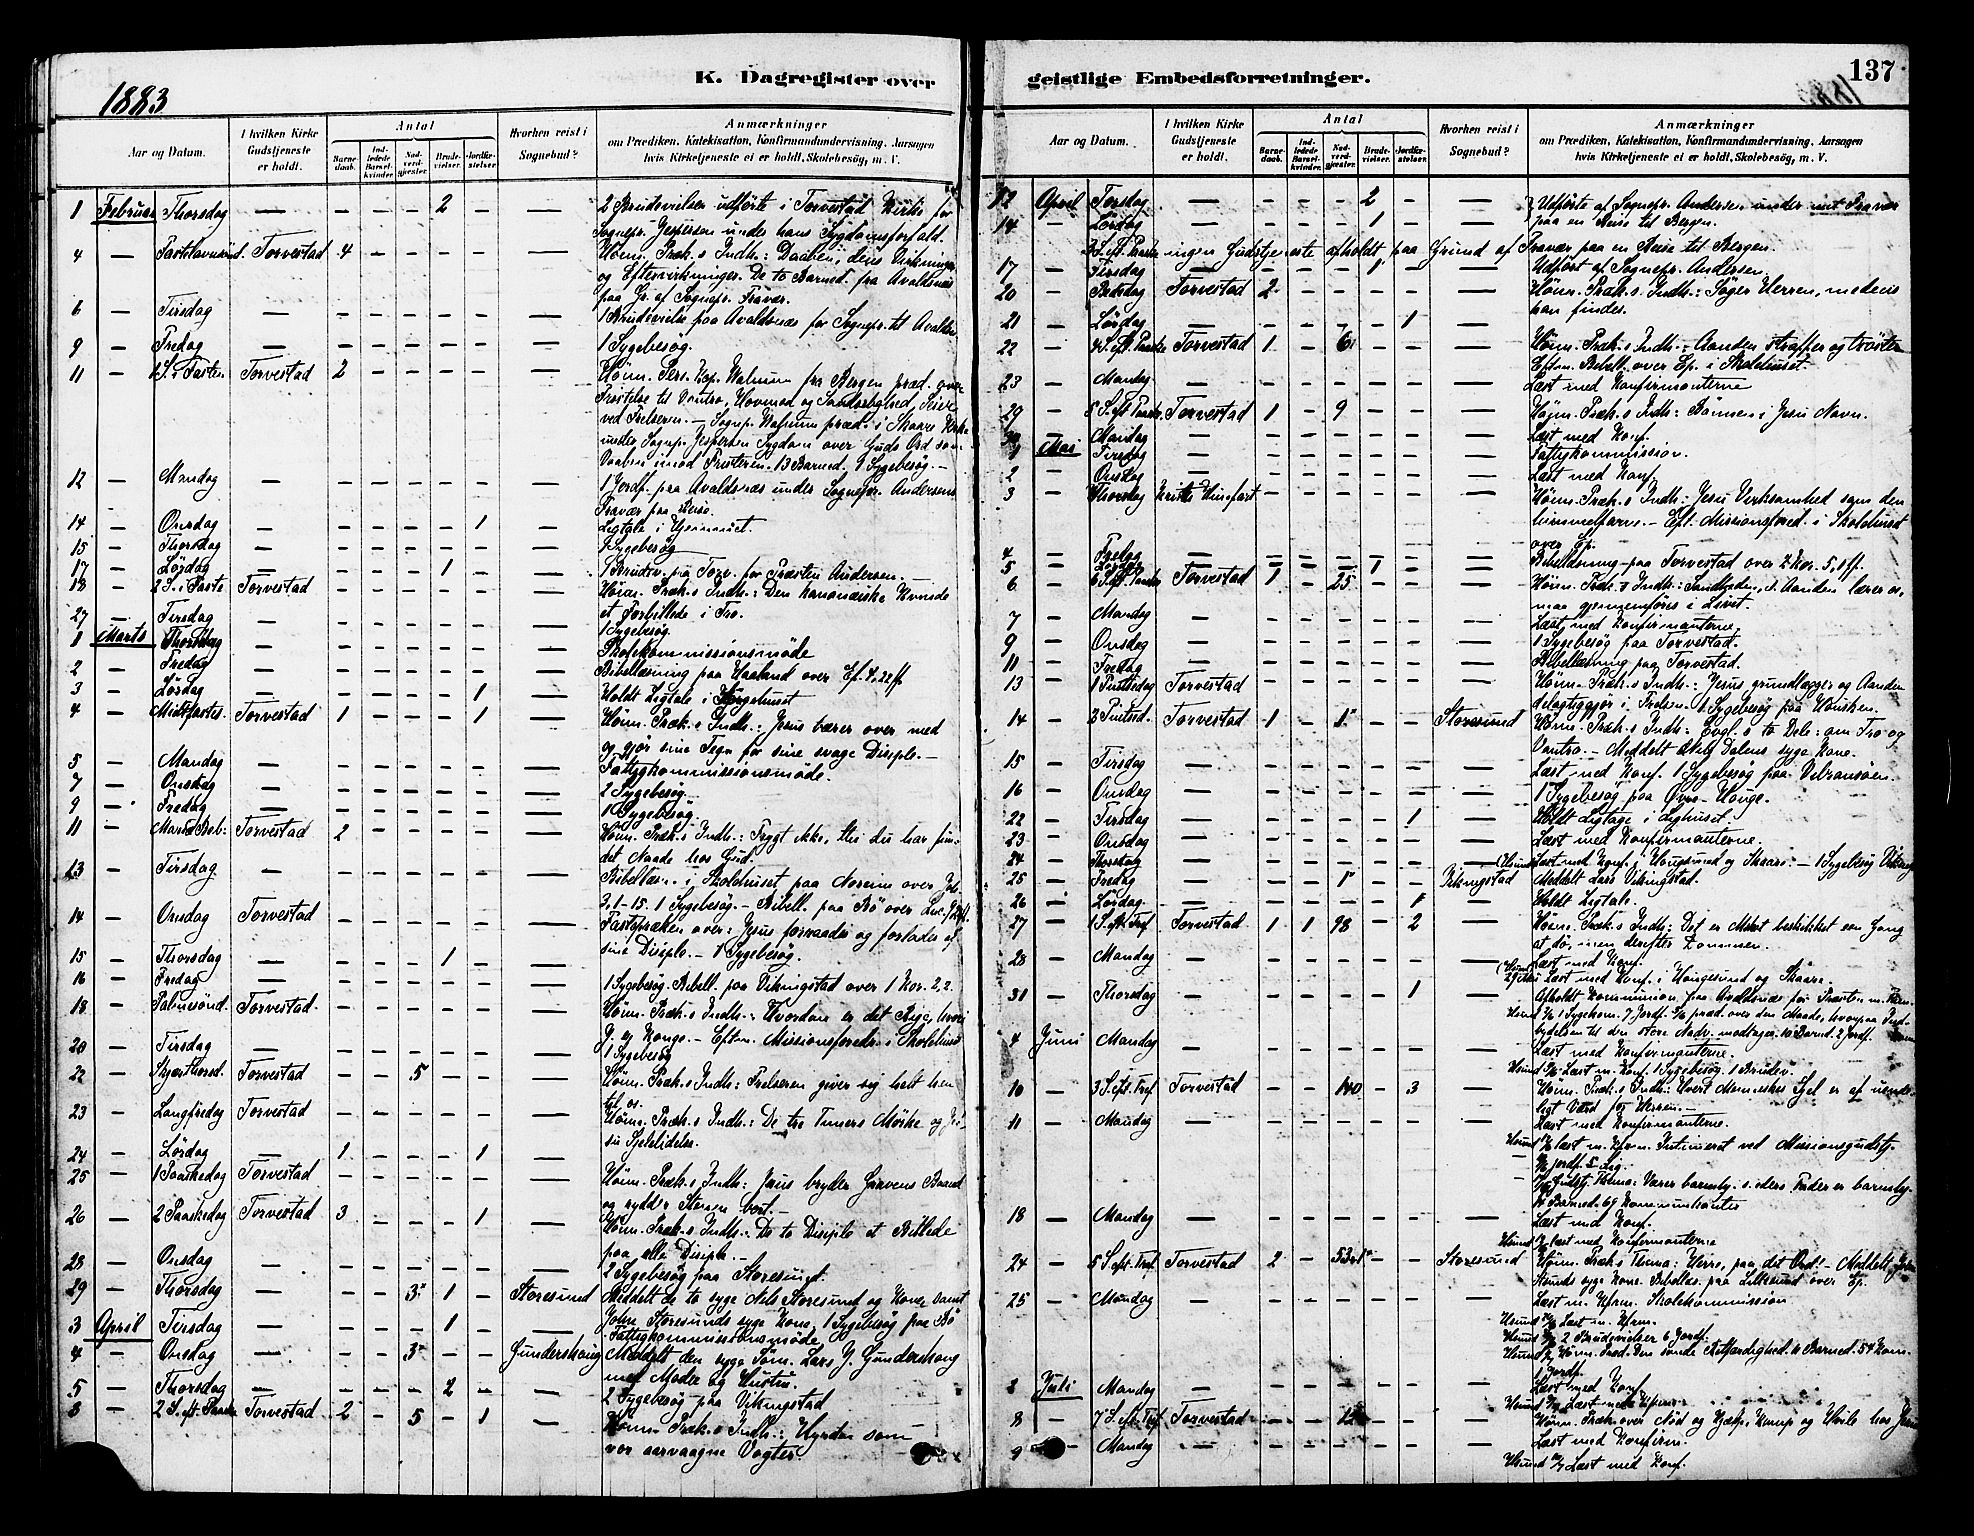 K. Dagregister over
1883
Aar og Datum.
I hvilken Kirke Gudstjeneste er holdt.
Antal
Barnedaab.
Indledede Barselkvinder.
Nadverdgjæster.
Brudevielser.
Jordfæstelser.
Hvorhen reist i Sognebud?
Anmærkninger
om Prædiken, Katekisation, Konfirmandundervisning, Aarsagen
hvis Kirketjeneste ei er holdt, Skolebesøg, m. V.
1 Februar Thorsdag — — — — 2 — — 2 Brudevielser udførte i Torvestad Kirke for
Sognepr. Jespersen under hans Sygdomsforfald.
4 — Fastelavnsønd. Torvestad 4 — — — — — Høim. Præk.s Indh.: Daaben, dens Virkninger
og Eftervirkninger. De to Barned. fra Avaldsnæs
paa Gr. af Sognepr. Fravær.
6 — Tirsdag — 1 Brudevielse paa Avaldsnæs for Sognepr. til Avaldsn.
9 — Fredag — 1 Sygebesøg.
11 — 1 S. i Fasten Torvestad 2 — — — — — Høim. Pers. Kap. Walnum fra Bergen præd. over
Fristelse til Vantro, Hovmod og Sandselighed, Seier
ved Frelseren. — Sognepr. Walnum præd. i Skaare Kirke
under Sognpr. Jespersen Sygdom over Guds Ord som
Vaaben imod Fristeren. 13 Barned. 1 Sygebesøg. —
12 — Mandag — 1 Jordf. paa Avaldsnæs under Sognepr. Andersens
Fravær paa Reise.
14 — Onsdag — — — — — 1 — Ligtale i Hjemmet.
15 — Thorsdag — 1 Sygebesøg
17 — Lørdag — — — — 1 — — 1 Brudev. paa Torv. for Præsten Andersen. —
18 — 2 S. i Faste Torvestad — Høim. Præk.s Indh.: Den kananæiske Kvinde
et Forbillede i Tro.
27 — Tirsdag — 1 Sygebesøg
1 Marts Thorsdag — Skolekommissionsmøde
2 — Fredag — Bibellæsning paa Haaland over Ef. 4. 22 ff.
3 — Lørdag — — — — — 1 — Holdt Ligtale i Sørgehuset
4 — Midtfastes. Torvestad 1 — — — 1 — Høim. Præk.s Indh.: Jesus bærer over med
og gjør sine Tegn for sine svage Disiple. —
5 — Mandag — Fattigkommissionsmøde.
7 — Onsdag — 2 Sygebesøg
9 — Fredag — 1 Sygebesøg.
11 — Mariæ Beb: Torvestad 2 — — — — — Høim. Præk.s Indh.: Frygt ikke, thi du har fundet
Naade hos Gud.
13 — Tirsdag — Bibellæsn. i Skolehuset paa Noreim over Joh.
2. 1-15. 1 Sygebesøg. — Bibell. paa Bø over Luc.
14 — Onsdag Torvestad — Fastepræken over: Jesus forraades og forlades af
sine Disiple. — 1 Sygebesøg.
15 — Thorsdag — — — — 1 — —
16 — Fredag — 1 Sygebesøg. Bibell. paa Vikingstad over 1 Kor. 2,2.
18 — Palmesønd. Torvestad — Høim. Præk.s Indh.: Hvordan er det Rige, hvori
J. er Konge. — Eftm. Missionsforedr. i Skolehuset
20 — Tirsdag — 1 Sygebesøg
22 — Skjærthorsd. Torvestad — — 5 — — — Høim. Præk.s Indh.: Frelseren giver sig helt hen
til os.
23 — Langfredag Torvestad — Høim. Præk.s Indh.: De tre Timers Mørke og Jesu
Sjelelidelse.
24 — Lørdag — 1 — — — 1 —
25 — 1 Paaskedag Torvestad — Høim. Præk.s Indh.: Jesus bryder Gravens Baand
og rydder Stenen bort. —
26 — 2 Paaskedag Torvestad 3 — — — 1 — Høim. Præk.s Indh.: De to Disiple et Billede
paa alle Disiple. —
28 — Onsdag — 2 Sygebesøg paa Storesund.
29 — Thorsdag — — — 3 1 — Storesund Meddelt de to syge Nils Storesund og Kone samt
John Storesunds syge Kone, 1 Sygebesøg paa Bø
3 April Tirsdag — — — — 1 — — Fattigkommissionsmøde
4 — Onsdag — — — 3 — — Gundershaug Meddelt den syge Tøm. Lars J. Gundershaug
med Moder og Hustru.
5 — Thorsdag — — — — 2 — — 2 Sygebesøg paa Vikingstad
8 — 2 S. eft. Paaske Torvestad 2 — 5 — 1 — Høim. Præk.s Indh.: Hyrden som
vor aarvaagne Vogter.
geistlige Embedsforretninger.
137
Aar og Datum.
I hvilken Kirke Gudstjeneste er holdt.
Antal
Barnedaab.
Indledede Barselkvinder.
Nadverdgjæster.
Brudevielser.
Jordfæstelser.
Hvorhen reist i Sognebud?
Anmærkninger
om Prædiken, Katekisation, Konfirmandundervisning, Aarsagen
hvis Kirketjeneste ei er holdt, Skolebesøg, m. V.
12 April Torsdag — — — — 2 — — Udførte af Sognepr. Andersen under mit Fravær
14 — Lørdag — — — — 1 — — paa en Reise til Bergen.
3 S. eft. Paaske ingen Gudstjeneste afholdt paa Grund af Fravær paa en Reise til Bergen.
17 — Tirsdag — — — — 1 — — Udført af Sognepr. Andersen
20 — Bededag Torvestad 2 — — — — — Høim. Præk.s Indh.: Søger Herren, medens
han findes.
21 — Lørdag — — — — — 1 —
22 — 4 S. eft. Paaske Torvestad 1 — 6 — — — Høim. Præk.s Indh.: Aanden straffer og trøster
Eftm. Bibell. over Ep. i Skolehuset.
23 — Mandag — Læst med Konfirmanterne
29 — 5 S. eft. Paaske Torvestad 1 — 9 — — — Høim. Præk.s Indh.: Bønnen i Jesu Navn.
30 — Mandag — Læst med Konf.
1 Mai Tirsdag — Fattigkommission.
2 — Onsdag — Læst med Konf.
3 — Thorsdag Kristi Himmelfart — Høim. Præk.s Indh.: Jesu Virksomhed som den
himmelfarne. — Eft. Missionsfored. i Skolehuset
over Ep.
4 — Fredag —
5 — Lørdag — — — — 1 — — Bibellæsning paa Torvestad over 2 Kor. 5, 1 ff.
6 — 6 S. eft. Paaske Torvestad 1 — 25 — — — Høim. Præk.s Indh.: Sandheden, s. Aanden lærer os,
maa gjennemføres i Livet.
7 — Mandag — Læst med Konfirmanterne
9 — Onsdag — 1 Sygebesøg paa Torvestad.
11 — Fredag — Bibellæsning paa Torvestad.
13 — 1 Pintsedag Torvestad Høim. Præk.s Indh.: Jesus grundlægger og Aanden
delagtiggjør i Frelsen. 1 Sygebesøg paa Hausken.
14 — 2 Pintsed. Torvestad 1 — 1 — — Storesund Høim. Præk.s Indh.: Evgl.s to Dele: om Tro og
Vantro. — Meddelt Dalens syge Kone.
15 — Tirsdag — Læst med Konf. 1 Sygebesøg paa Vibransøen.
16 — Onsdag — 1 Sygebesøg paa Øvre-Hauge.
22 — Tirsdag — — — — — 1 — Holdt Ligtale i Lighuset.
23 — Onsdag — Læst med Konfirmanterne.
24 — Thorsdag — (Hsund) Læst med Konf. i Haugesund og Skaare. — 1 Sygebesøg
25 — Fredag — — — 1 — — Vikingstad Meddelt Lars Vikingstad.
26 — Lørdag — — — — — 1 — Holdt Ligtale.
27 — 1 S. eft. Tref. Torvestad 1 1 98 — 2 — Høim. Præk.s Indh.: Det er Mskt beskikket een Gang
at dø, men derefter Dommen.
28 — Mandag — Læst med Konf.
(Hsund) 29 Læst med Konf. i Haugesund og Skaare.
31 — Thorsdag — — — — — 1 — Afholdt Kommunion paa Avaldsnæs for Præsten
Hsund 1 Sygekom. 7 Jordf. præd. over den Maade, hvorpaa Indbydelsen
til den store Nadv. modtages. 10 Barned. 2 Jordf.
4 Juni Mandag — Læst med Konfirmanterne.
Hsund Læst m. Konf. 1 Sygebesøg. 1 Brudev.
10 — 3 S. eft. Tref. Torvestad — — 140 — 3 — Høim. Præk.s Indh.: Hvert Menneskes Sjel er af uendeligt
Værd for Herren. —
11 — Mandag — Læst med Konfirmanterne.
Hsund læst m. Kfrm. Intimeret ved Missionsgudstj.
Jordf. 5 Lig.
Gudstj. Thema: Værer barmhj. s. eders Fader er barmhj.
Barned. 69 Kommunikanter
18 — Mandag — Læst med Konf.
Hsund læst med Konfirmanterne
24 — 5 S. eft. Tref. Torvestad 2 — — — Storesund Høim. Præk.s Thema: Herre, paa det Ord! — Meddelt
syge Kone. Bibellæs. paa Littlesund over Ep.
25 — Mandag — Læst m. Kfrm. Skolekommission
Hsund Læst m. Kfrm.
Hsund 2 Brudevielser 6 Jordf.
Hsund Høim. Præd. Den sande Retfærdighed. 11 Barned. 54 Kom.
1 Jordf.
2 Juli Mandag — Læst med Konf.
Hsund Læst med Kfrm.
8 — 7 S. eft. Tref. Torvestad — Høim. Præk. over Nød og Hjælp, Kamp og Hvile hos Jesus
9 — Mandag — Læst med Konfirm.
Hsund Læst med Konf.